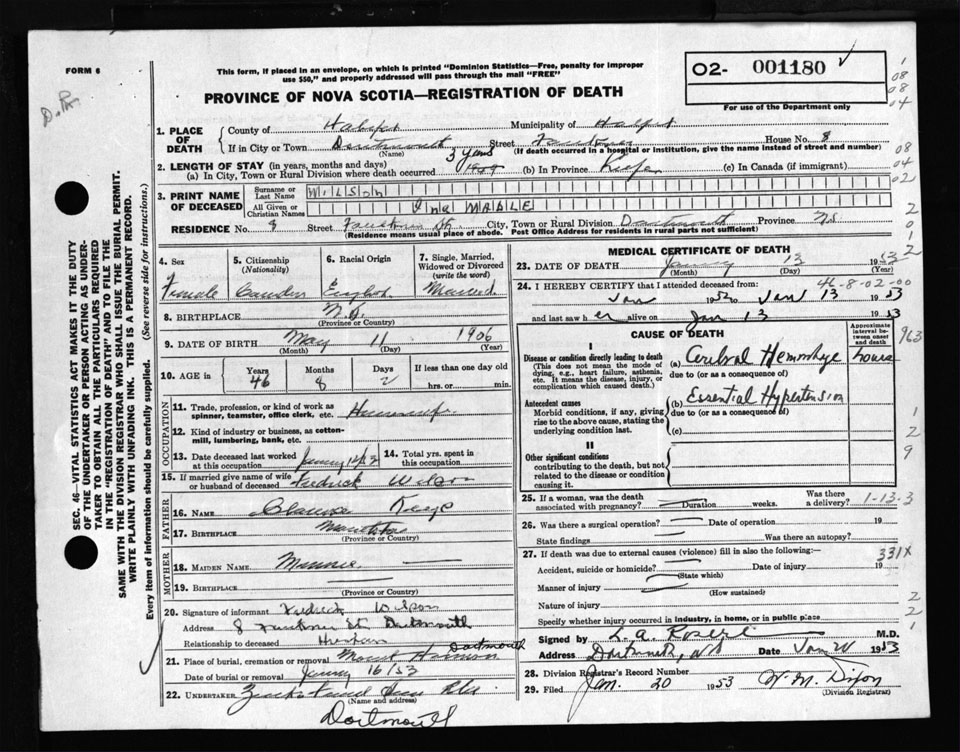 FORM 6
This form, if placed in an envelope, on which is printed "Dominion Statistics—Free, penalty for improper
use $50," and properly addressed will pass through the mail "FREE"
O2- 001180
For use of the Department only
PROVINCE OF NOVA SCOTIA—REGISTRATION OF DEATH
SEC. 46—VITAL STATISTICS ACT MAKES IT THE DUTY
OF THE UNDERTAKER OR PERSON ACTING AS UNDER-
TAKER TO OBTAIN ALL THE PARTICULARS REQUIRED
IN THE "REGISTRATION OF DEATH" AND TO FILE THE
SAME WITH THE DIVISION REGISTRAR WHO SHALL ISSUE THE BURIAL PERMIT.
WRITE PLAINLY WITH UNFADING INK. THIS IS A PERMANENT RECORD.
Every item of information should be carefully supplied. (See reverse side for instructions.)
1. PLACE OF DEATH
County of Halifax Municipality of Halifax
If in City or Town Dartmouth Street House No. 8
(Name) (If death occurred in a hospital or institution, give the name instead of street and number)
2. LENGTH OF STAY (in years, months and days)
(a) In City, Town or Rural Division where death occurred 3 years (b) In Province Life (c) In Canada (if immigrant)
3. PRINT NAME OF DECEASED
Surname or Last Name WILSON
All Given or Christian Names Ina MABLE
RESIDENCE No. 8 Street City, Town or Rural Division Dartmouth Province N.S.
(Residence means usual place of abode. Post Office Address for residents in rural parts not sufficient)
4. Sex Female
5. Citizenship (Nationality) Canadian
6. Racial Origin English
7. Single, Married, Widowed or Divorced (write the word) Married
8. BIRTHPLACE N.S.
(Province or Country)
9. DATE OF BIRTH May 11 1906
(Month) (Day) (Year)
10. AGE in Years 46 Months 8 Days 2 If less than one day
hrs. or min.
OCCUPATION
11. Trade, profession, or kind of work as spinner, teamster, office clerk, etc. Housewife
12. Kind of industry or business, as cotton-mill, lumbering, bank, etc.
13. Date deceased last worked at this occupation
14. Total yrs. spent in this occupation
15. If married give name of wife or husband of deceased Fredrick Wilson
FATHER
16. NAME Clarence
17. BIRTHPLACE
(Province or Country)
MOTHER
18. MAIDEN NAME Minnie
19. BIRTHPLACE
(Province or Country)
20. Signature of informant Fredrick Wilson
Address 8 St Dartmouth
Relationship to deceased Husban
21. Place of burial, cremation or removal Mount Dartmouth
Date of burial or removal 16/53
22. UNDERTAKER
(Name and address)
Dartmouth
MEDICAL CERTIFICATE OF DEATH
23. DATE OF DEATH January 13 1953
(Month) (Day) (Year)
46-8-02-00
24. I HEREBY CERTIFY that I attended deceased from
Jan 1952 to Jan 13 1953
and last saw her alive on Jan 13 1953
CAUSE OF DEATH
Approximate interval between onset and death
I
Disease or condition directly leading to death
(This does not mean the mode of dying, e.g., heart failure, asthenia, etc. It means the disease, injury, or complication which caused death.)
(a) Cerebral Hemorrhage hours
due to (or as a consequence of)
Antecedent causes
Morbid conditions, if any, giving rise to the above cause, stating the underlying condition last.
(b) Essential Hypertension
due to (or as a consequence of)
(c)
II
Other significant conditions
contributing to the death, but not related to the disease or condition causing it.
25. If a woman, was the death associated with pregnancy? Duration weeks. Was there a delivery? 1-13-3
26. Was there a surgical operation? Date of operation 19
State findings Was there an autopsy?
27. If death was due to external causes (violence) fill in also the following:— 331X
Accident, suicide or homicide? Date of injury 19
(State which)
Manner of injury
(How sustained)
Nature of injury
Specify whether injury occurred in industry, in home, or in public place
Signed by M.D.
Address Dartmouth, NS Date Jan 1953
28. Division Registrar's Record Number
29. Filed Jan. 20 1953 W. M. Dixon
(Division Registrar)